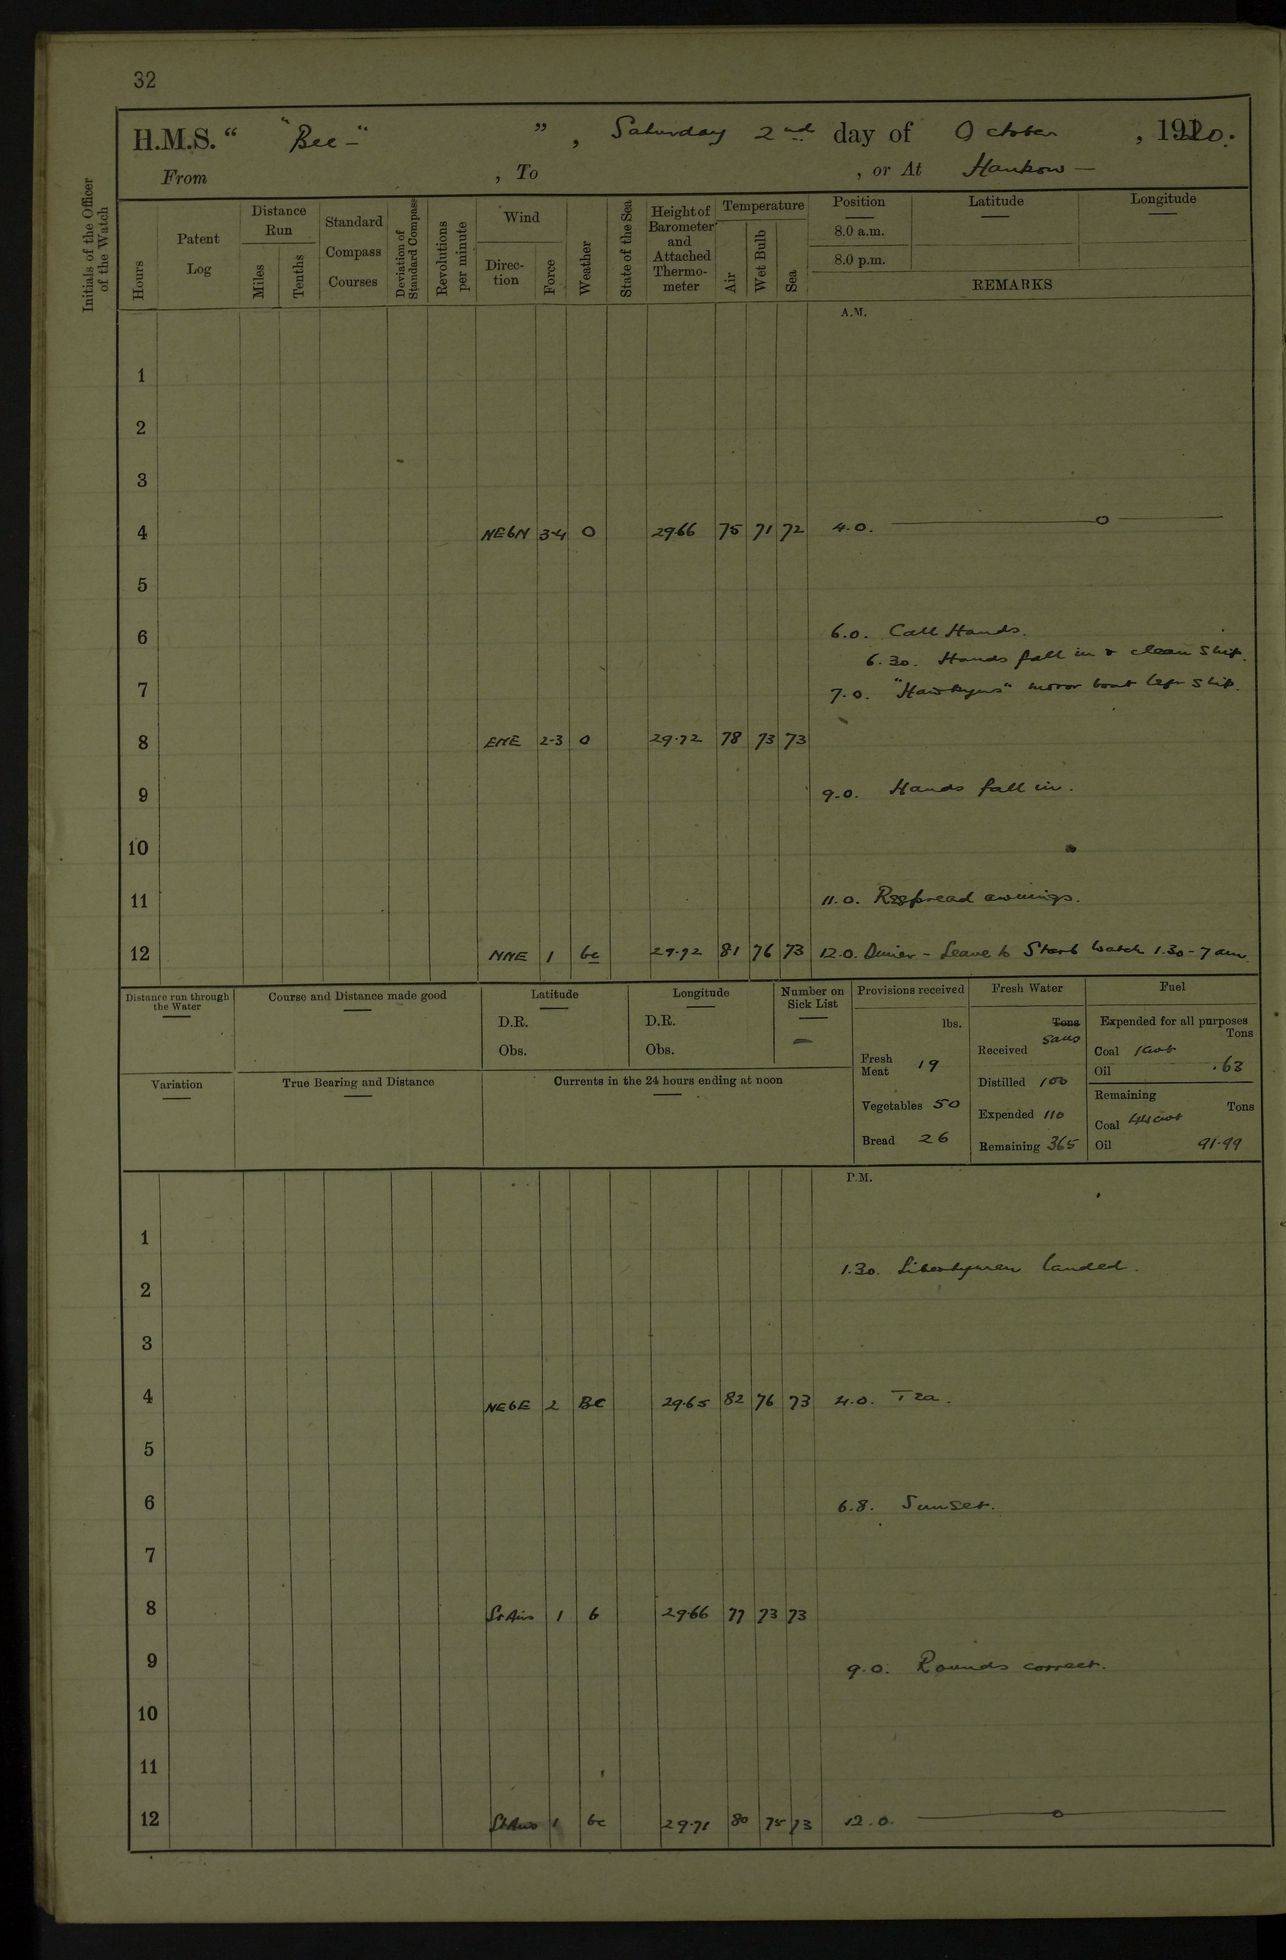 32
H.M.S. “ "Bee-" ” , Saturday 2nd day of October , 1920.
From , To , or At Hankow —
Initials of the Officer of the Watch
Hours
Patent Log
Distance Run
Miles
Tenths
Standard Compass Courses
Deviation of Standard Compass
Revolutions per minute
Wind
Direction
Force
Weather
State of the Sea
Height of Barometer and Attached Thermometer
Temperature
Air
Wet Bulb
Sea
Position
Latitude
Longitude
8.0 a.m.
8.0 p.m.
REMARKS
A.M.
1
2
3
4 NEbN 3-4 O 29.66 75 71 72 4.0. ——o——
5
6 6.0. Call Hands.
6.30. Hands fall in & clean ship.
7 7.0. "Hawkyns" motor boat left ship.
8 ENE 2-3 O 29.72 78 73 73
9 9.0. Hands fall in.
10
11 11.0. Respread awnings.
12 NNE 1 bc 29.72 81 76 73 12.0. Dinner - Leave to Starb Watch 1.30 - 7 am
Distance run through the Water
Course and Distance made good
Latitude
D.R.
Obs.
Longitude
D.R.
Obs.
Number on Sick List
—
Provisions received
lbs.
Fresh Meat 19
Vegetables 50
Bread 26
Fresh Water
Tons
Galls
Received
Distilled 100
Expended 110
Remaining 365
Fuel
Expended for all purposes
Tons
Coal 1 cwt
Oil .63
Remaining
Tons
Coal 44 cwt
Oil 91.99
Variation
True Bearing and Distance
Currents in the 24 hours ending at noon
P.M.
1
1.30. Libertymen landed.
2
3
4 NEbE 2 BC 29.65 82 76 73 4.0. Tea.
5
6 6.8. Sunset.
7
8 Lt Airs 1 b 29.66 77 73 73
9 9.0. Rounds correct.
10
11
12 Lt Airs 1 bc 29.71 80 75 73 12.0. ——o——